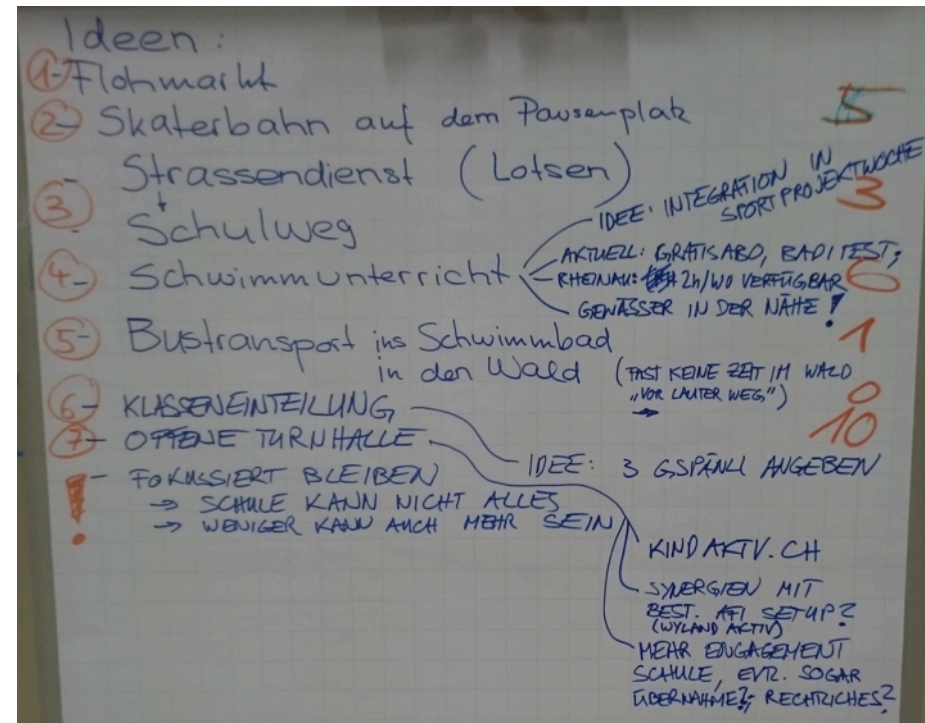 Ideen:
1- Flohmarkt
2- Skaterbahn auf dem Pausenplatz 5
- Strassendienst (Lotsen)
3 ↓ Schulweg 3
IDEE: INTEGRATION IN
SPORTPROJEKTWOCHE
4- Schwimmunterricht
AKTUELL: GRATISABO, BADITEST;
RHEINAU: 2h/WO VERFÜGBAR
GEWÄSSER IN DER NÄHE!
5- Bustransport ins Schwimmbad 1
in den Wald (FAST KEINE ZEIT IM WALD
"VOR LAUTER WEG")
→
6- KLASSENEINTEILUNG 0
7- OFFENE TURNHALLE 10
IDEE: 3 GSPÄNLI ANGEBEN
!- FOKUSSIERT BLEIBEN
→ SCHULE KANN NICHT ALLES
→ WENIGER KANN AUCH MEHR SEIN
KINDAKTIV.CH
SYNERGIEN MIT
BEST. AFI SETUP?
(WYLAND AKTIV)
MEHR ENGAGEMENT
SCHULE, EVT. SOGAR
ÜBERNAHME?; RECHTLICHES?